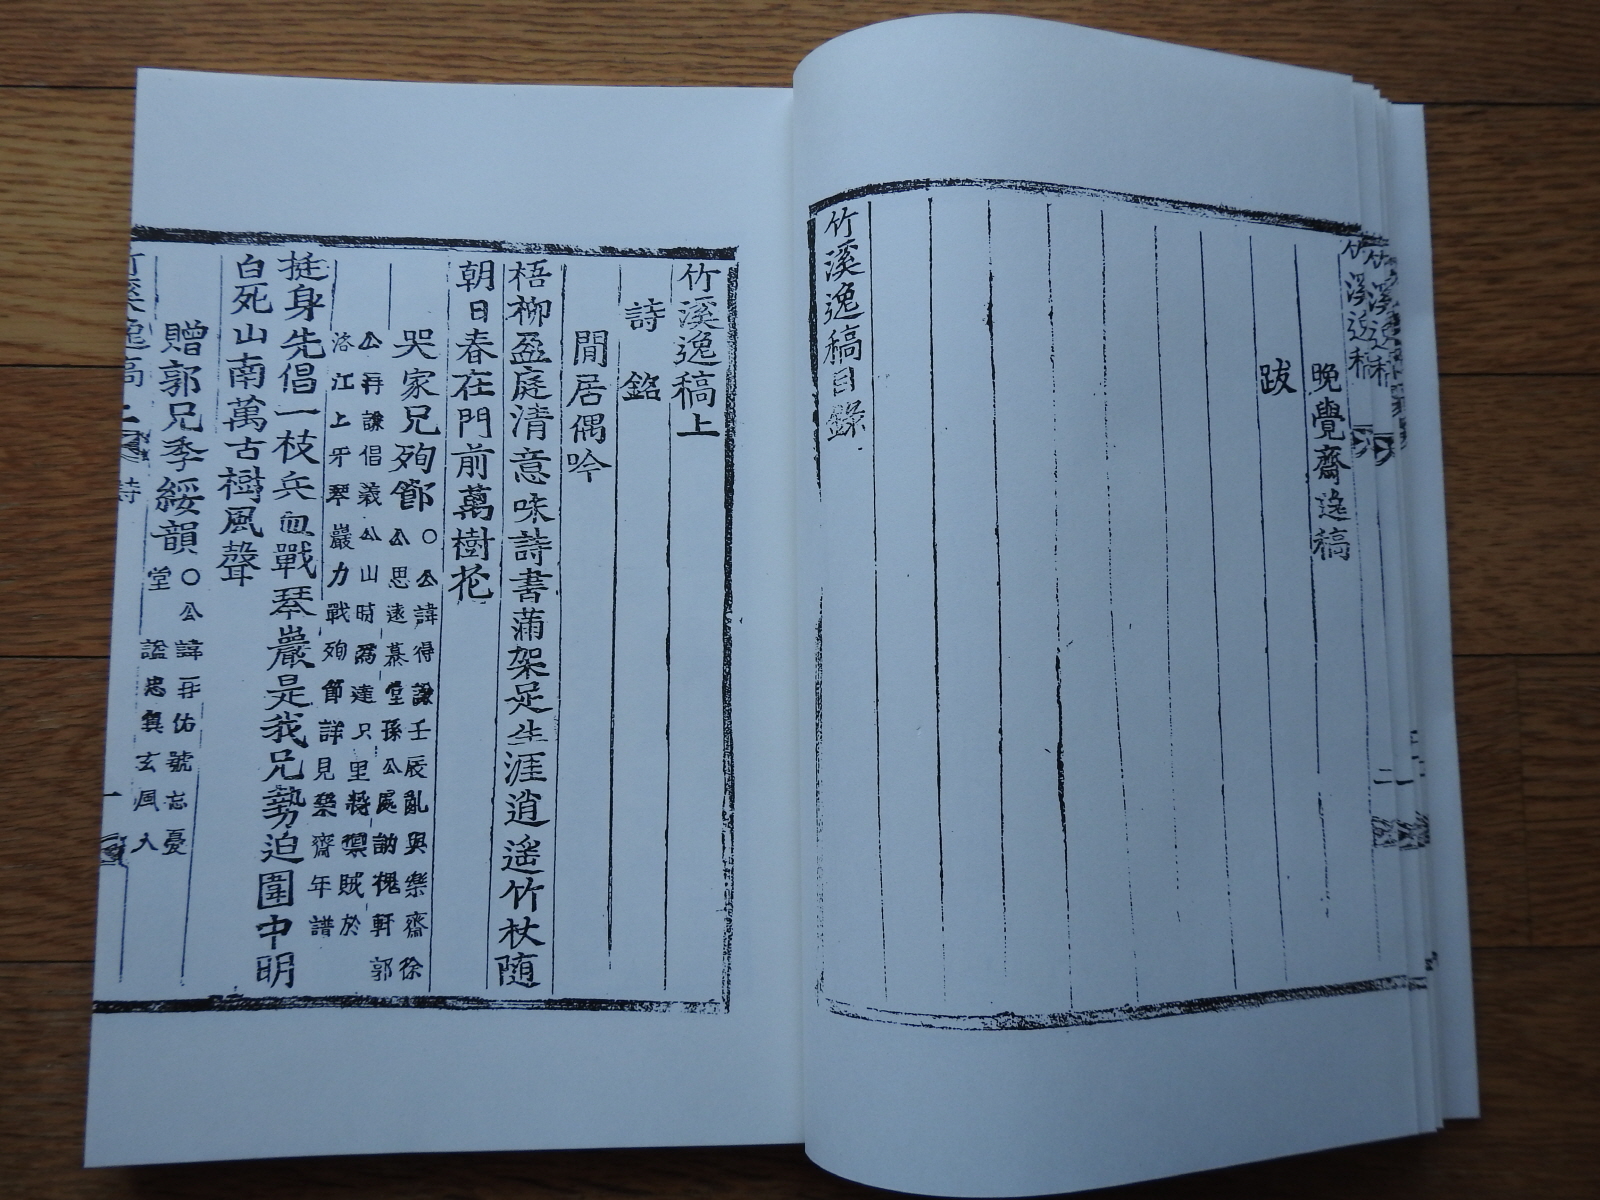 晚覺齋逸稿
跋
竹溪逸稿目錄
竹溪逸稿上
詩 銘
閒居偶吟
梧柳盈庭淸意味詩書蒲架足生涯逍遙竹杖随
朝日春在門前萬樹花
哭家兄殉節○公諱得謙壬辰亂與樂齋徐
公思遠慕堂孫公處訥槐軒郭
公再謙倡義公山時爲達只里將禦賊於
洛江上牙琴巖力戰殉節詳見樂齋年譜
挺身先倡一枝兵血戰琴巖是我兄勢迫圍中明
白死山南萬古樹風聲
贈郭兄季綏韻○公諱再佑號忘憂
堂諡忠翼玄風人
竹溪逸稿上 詩 一